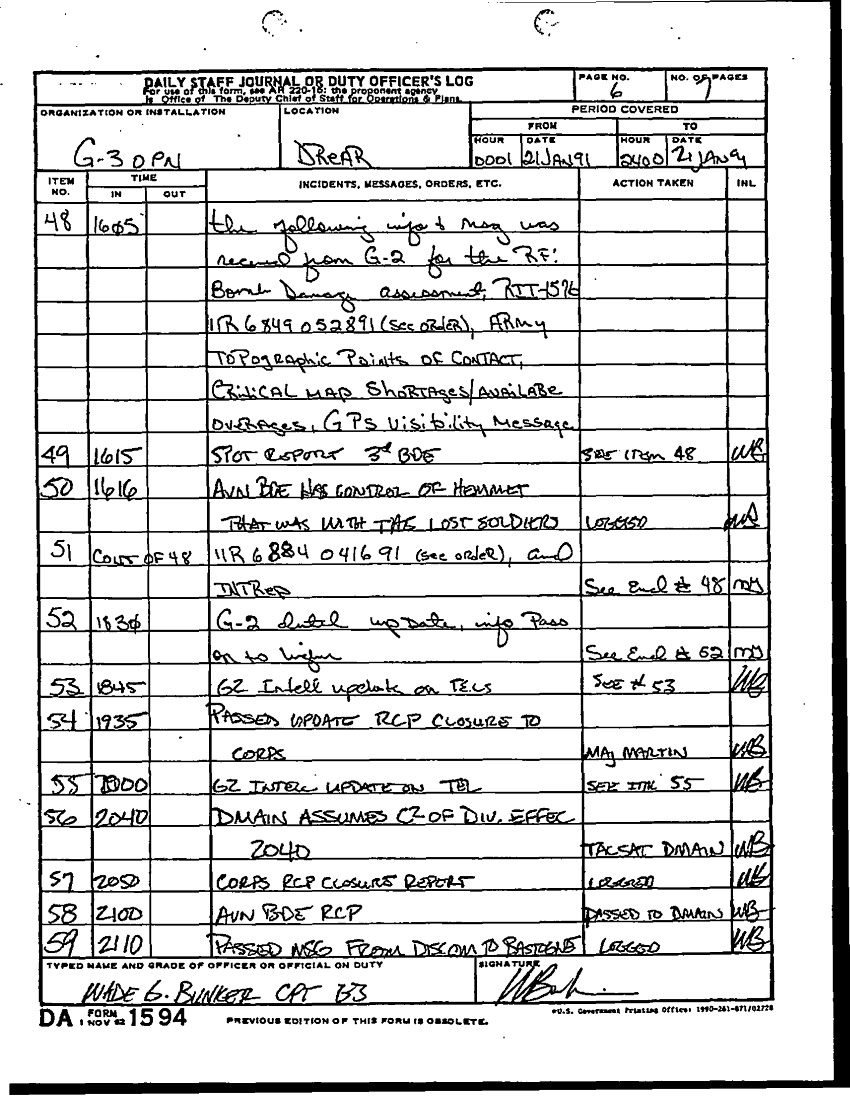 DAILY STAFF JOURNAL OR DUTY OFFICER'S LOG
For use of this form, see AR 220-15; the proponent agency
is Office of The Deputy Chief of Staff for Operations & Plans.
PAGE NO.
6
NO. OF PAGES
7
ORGANIZATION OR INSTALLATION
G-3 OPN
LOCATION
DREAR
PERIOD COVERED
FROM
TO
HOUR
DATE
HOUR
DATE
0001
21JAN91
2400
21JAN91
ITEM NO.
TIME
IN
OUT
INCIDENTS, MESSAGES, ORDERS, ETC.
ACTION TAKEN
INL
48 1605 the following info & msg was
received from G-2 for the RF:
Bomb Damage assessment, RII-1576
IIR 6 849 0528 91 (see order), ARMY
TOPOgraphic Points OF CONTACT,
CRitiCAL MAP Shortages/AVAILABE
OVERAges, GPS Visibility Message
49 1615 SPOT REPORT 3d BDE SEE ITEM 48 WB
50 1616 AVN BDE HAS CONTROL OF HEMMET
THAT WAS WITH THE LOST SOLDIERS LOGGED WB
51 CONT OF 48 IIR 6 884 0416 91 (see order), and
INTRep See Encl # 48
52 1830 G-2 update, info Pass
on to higher See Encl # 52
53 1845 G2 Intell update on TELs SEE # 53 WB
54 1935 PASSED UPDATE RCP CLOSURE TO
CORPS MAJ MARTIN WB
55 2000 G2 INTELL UPDATE ON TEL SEE ITM 55 WB
56 2040 DMAIN ASSUMES C2 OF DIV. EFFEC
2040 TACSAT DMAIN WB
57 2050 CORPS RCP CLOSURE REPORT LOGGED WB
58 2100 AVN BDE RCP PASSED TO DMAIN WB
59 2110 PASSED MSG FROM DISCOM TO BASTOGNE LOGGED WB
TYPED NAME AND GRADE OF OFFICER OR OFFICIAL ON DUTY
WADE G. BUNKER CPT G3
SIGNATURE
DA FORM 1 NOV 62 1594
PREVIOUS EDITION OF THIS FORM IS OBSOLETE.
*U.S. Government Printing Office: 1990-261-871/02728